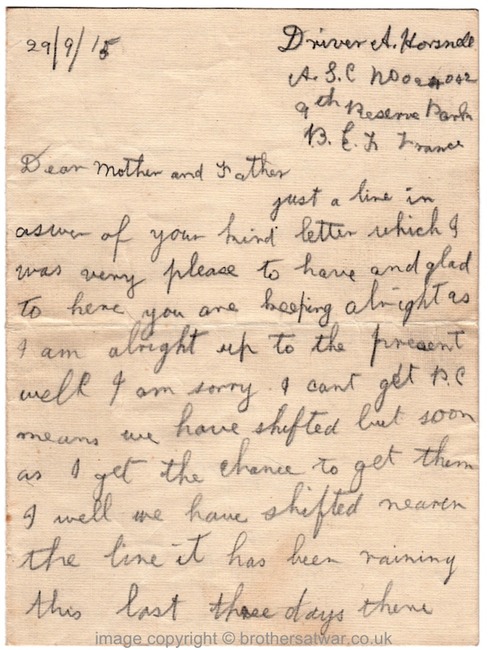 29/9/15
Driver A. Horsnell
A. S. C
9th Reserve Park
B. E. F France
Dear Mother and Father
just a line in
aswer of your kind letter which I
was very please to have and glad
to here you are keeping alright as
I am alright up to the present
well I am sorry I cant get P.C
means we have shifted but soon
as I get the chance to get them
I well we have shifted nearer
the line it has been raining
this last three days there
image copyright © brothersatwar.co.uk